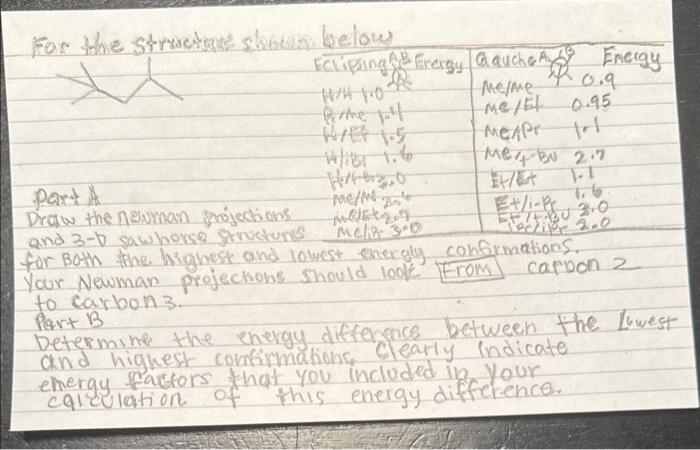 For the structure shown below
Eclipsing A B Energy
H/H 1.0
H/Me 1.4
H/Et 1.5
H/iPr 1.6
H/t-Bu 3.0
Me/Me
Me/Et 2.9
Me/iPr 3.0
Gauche A B Energy
Me/Me 0.9
Me/Et 0.95
Me/iPr 1.1
Me/t-Bu 2.7
Et/Et 1.1
Et/i-Pr 1.6
Et/t-Bu 3.0
iPr/iPr 2.0
Part A
Draw the newman projections
and 3-D sawhorse structures
for Both the highest and lowest energly confirmations.
Your Newman projections should look From carbon 2
to carbon 3.
Part B
Determine the energy difference between the Lowest
and highest confirmations. Clearly indicate
energy factors that you included in your
calculation of this energy difference.